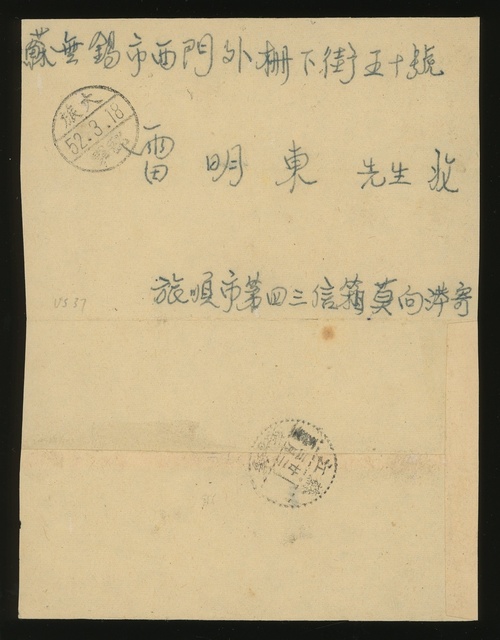 蘇無錫市西門外柵下街五十號
旅大
52.3.18
雷明東先生啟
旅順市第四三信箱莫向 寄
VS 37
江蘇